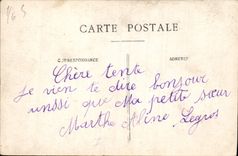 1/65
CARTE POSTALE
CORRESPONDANCE
ADRESSE
Chère tente
Je vien te dire bonjour
unssi que Ma petite sœur
Marthe Aline Legros